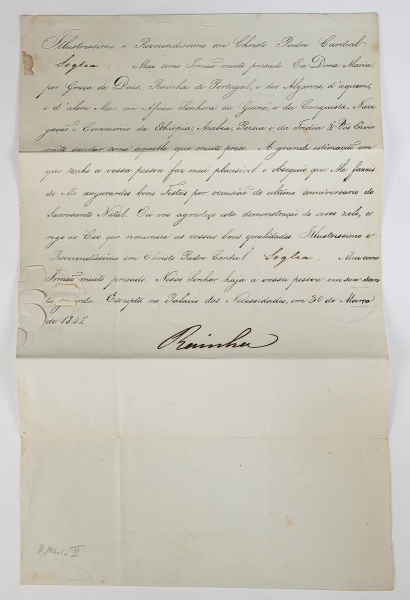 Illustrissimo e Reverendissimo em Christo Padre Cardeal
Soglia. Meu como Irmão muito presado Eu Dona Maria
por Graça de Deus, Rainha de Portugal, e dos Algarves, d'aquem,
e d'alem Mar, em Africa Senhora de Guiné, e da Conquista, Nave
gação e Commercio da Ethiopia, Arabia, Persia e da India &ª Vos Envio
muito saudar como aquelle que muito preso. A grande estimação em
que tenho a vossa pessoa faz mui plausivel o obsequio que Me fazeis
de Me augurardes boas Festas por occasião do ultimo anniversario do
Sacrosanto Natal. Eu vos agradeço esta demonstração do vosso zelo, e
rogo ao Ceo que remunere as vossas boas qualidades Illustrissimo e
Reverendissimo em Christo Padre Cardeal Soglia, Meu como
Irmão muito presado. Nosso Senhor haja a vossa pessoa em sua san
ta guarda. Escripta no Palacio das Necessidades, em 30 de Março
de 1847.
Rainha
D Maria II